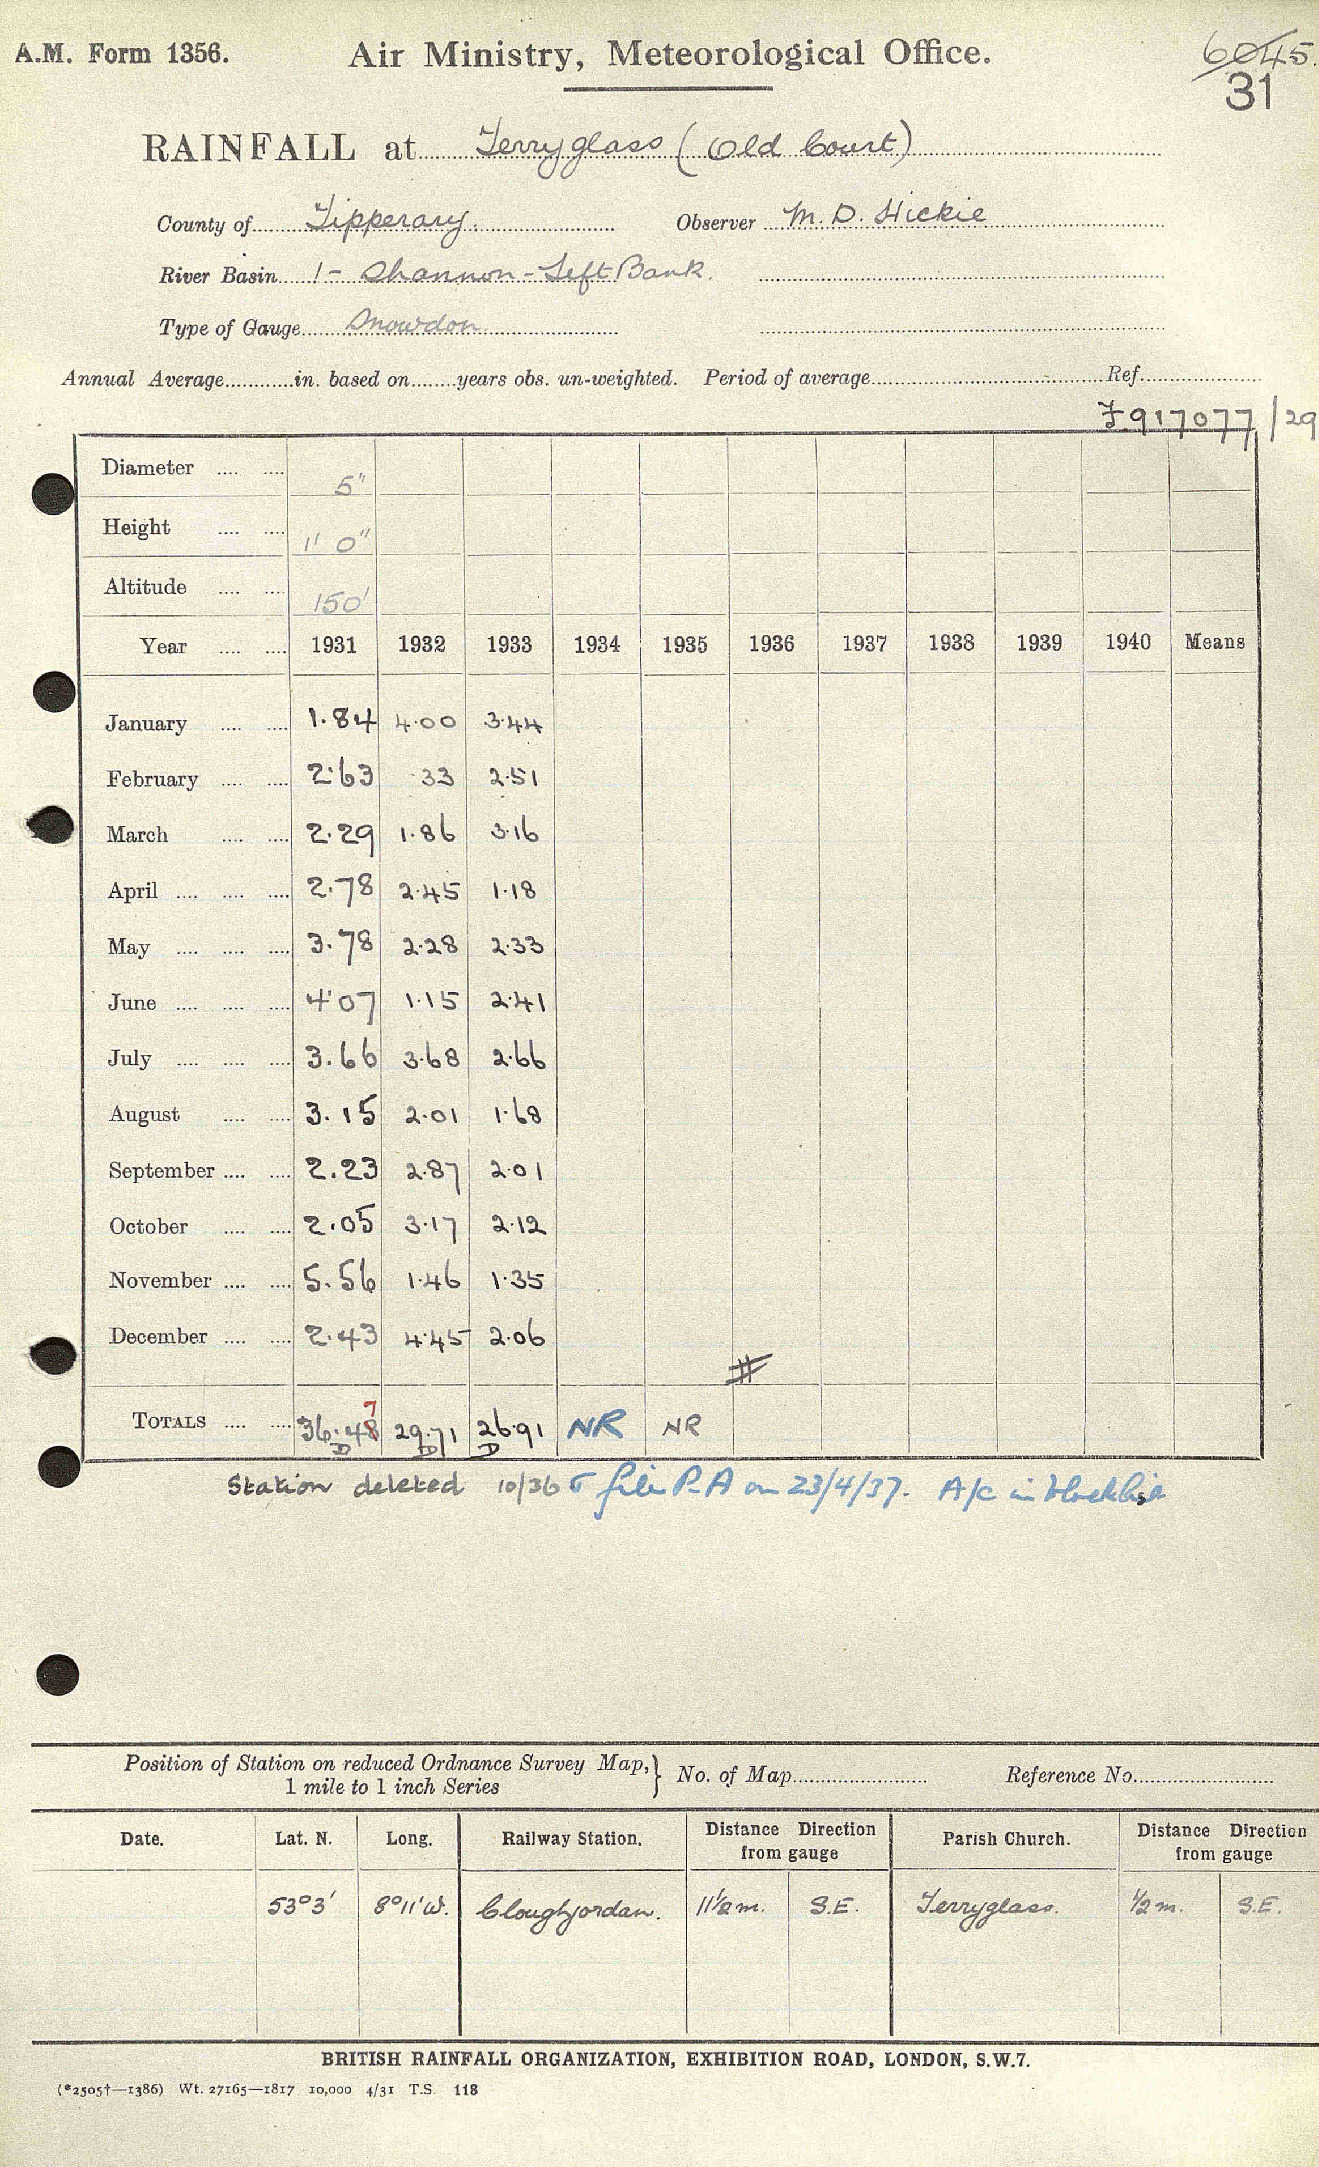 A.M. Form 1356. Air Ministry, Meteorological Office. 6045.
31
RAINFALL at Terryglass (Old Court)
County of Tipperary. Observer M. D. Hickie
River Basin 1 - Shannon - Left Bank.
Type of Gauge Snowdon
Annual Average in. based on years obs. un-weighted. Period of average Ref.
917077/29
Diameter 5"
Height 1' 0"
Altitude 150'
Year 1931 1932 1933 1934 1935 1936 1937 1938 1939 1940 Means
January 1.84 4.00 3.44
February 2.63 .33 2.51
March 2.29 1.86 3.16
April 2.78 2.45 1.18
May 3.78 2.28 2.33
June 4.07 1.15 2.41
July 3.66 3.68 2.66
August 3.15 2.01 1.68
September 2.23 2.87 2.01
October 2.05 3.17 2.12
November 5.56 1.46 1.35
December 2.43 4.45 2.06
7
TOTALS 36.48 29.71 26.91 NR NR
D D D
Station deleted 10/36 file P.A on 23/4/37. A/c in blacklist
Position of Station on reduced Ordnance Survey Map, } No. of Map Reference No.
1 mile to 1 inch Series
Date. Lat. N. Long. Railway Station. Distance Direction from gauge Parish Church. Distance Direction from gauge
53°3' 8°11'W. Cloughjordan. 11½m. S.E. Terryglass. ½m. S.E.
BRITISH RAINFALL ORGANIZATION, EXHIBITION ROAD, LONDON, S.W.7.
(*2505†—1386) Wt. 27165—1817 10,000 4/31 T.S. 118